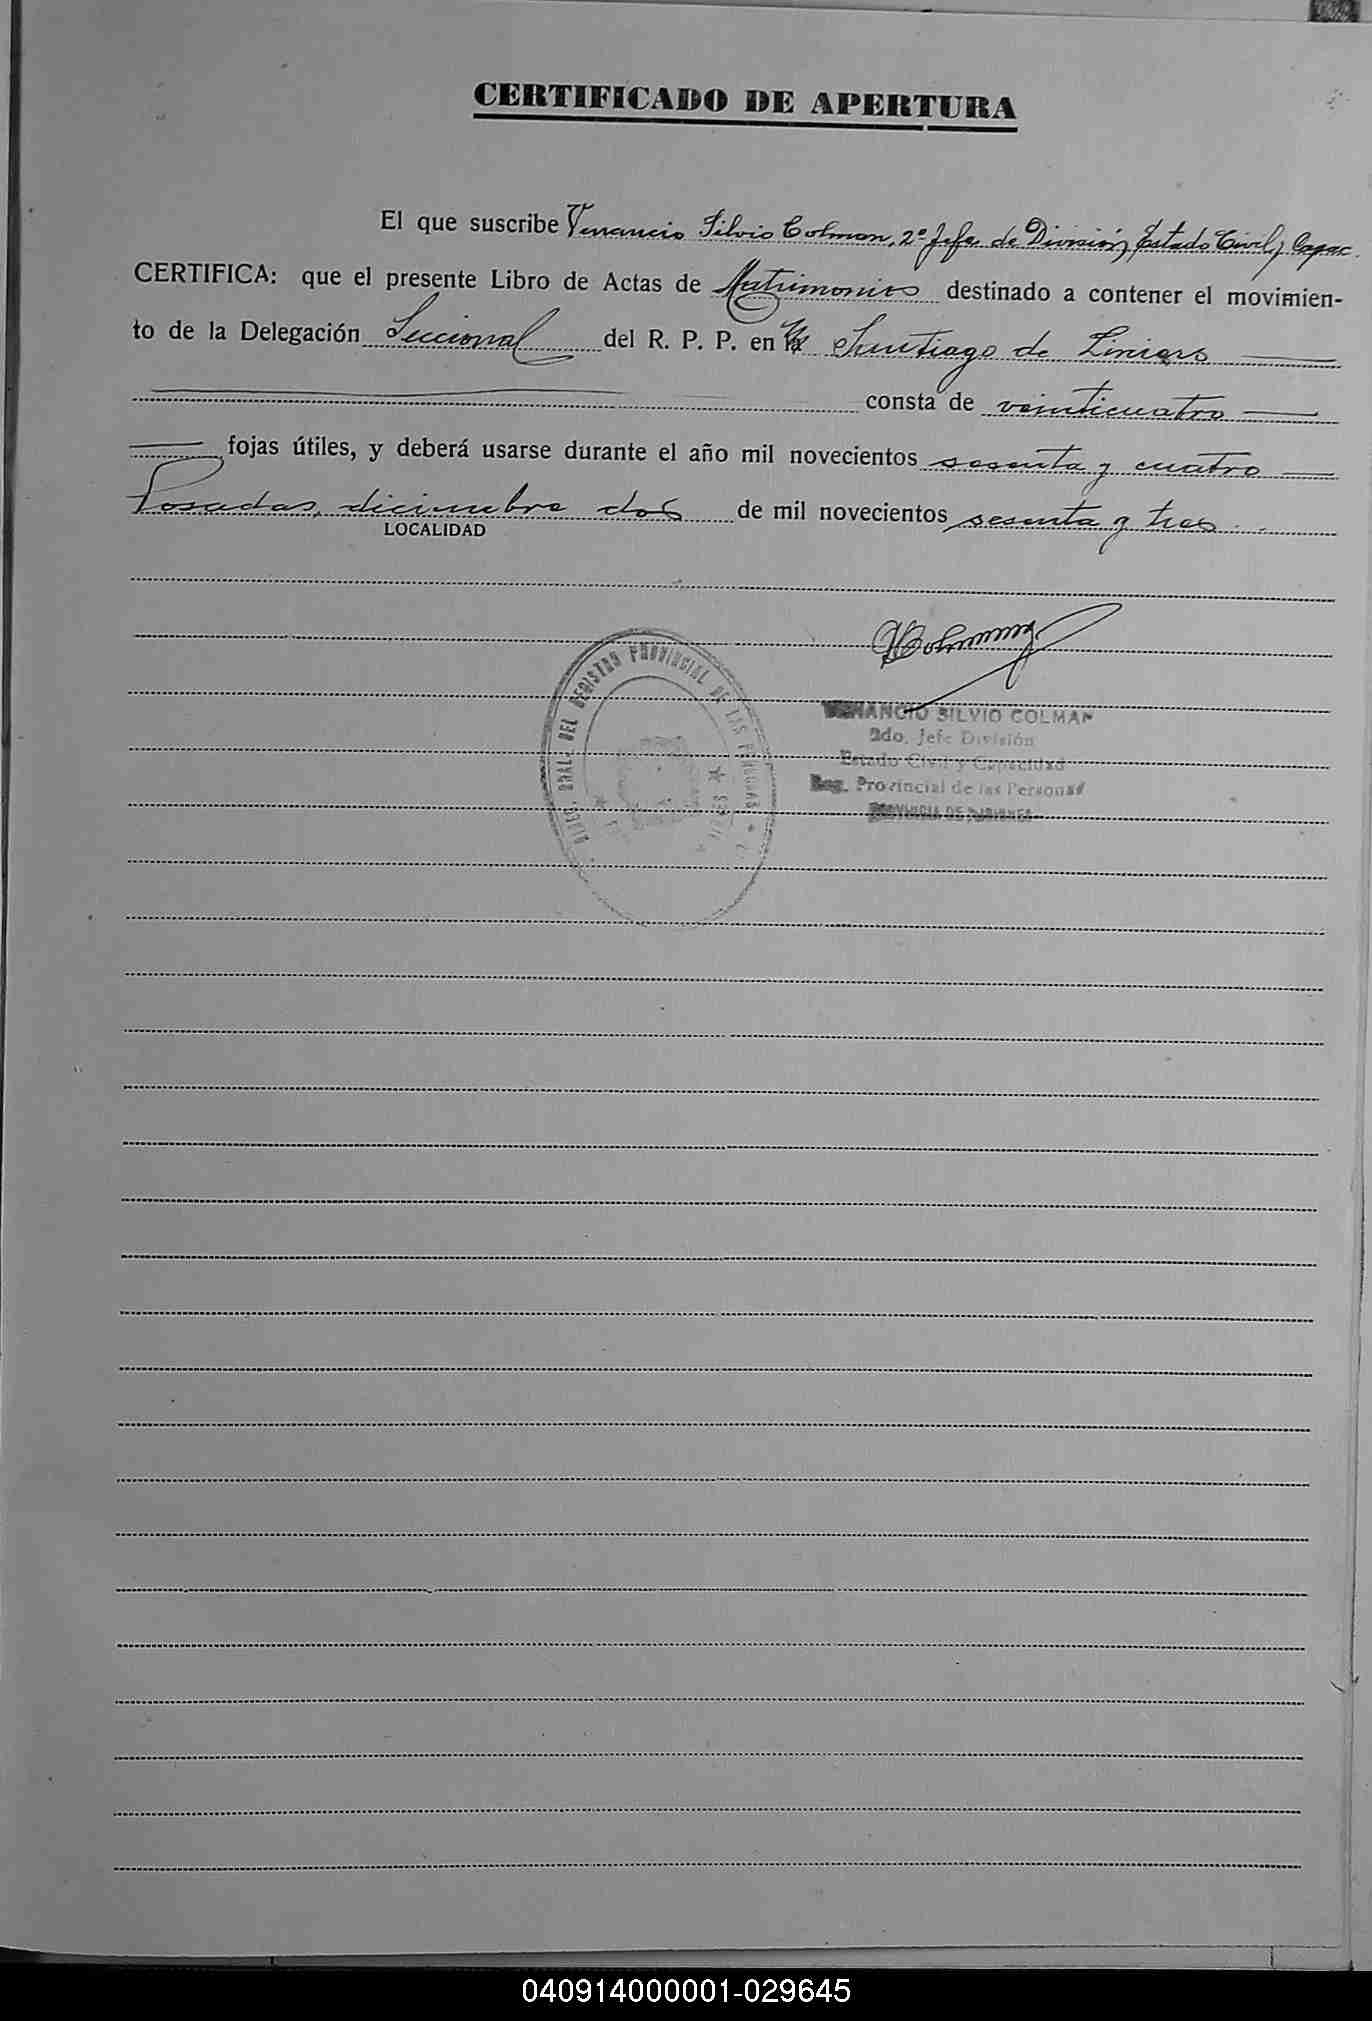 CERTIFICADO DE APERTURA
El que suscribe Venancio Silvio Colman, 2º Jefe de División Estado Civil y Capac.
CERTIFICA: que el presente Libro de Actas de Matrimonios destinado a contener el movimien-
to de la Delegación Seccional del R. P. P. en Santiago de Liniers
consta de veinticuatro
fojas útiles, y deberá usarse durante el año mil novecientos sesenta y cuatro
Posadas, diciembre dos de mil novecientos sesenta y tres.
LOCALIDAD
VColman
VENANCIO SILVIO COLMAN
2do. Jefe División
Estado Civil y Capacidad
Reg. Provincial de las Personas
PROVINCIA DE MISIONES
DIREC. GRAL. DEL REGISTRO PROVINCIAL DE LAS PERSONAS
040914000001-029645